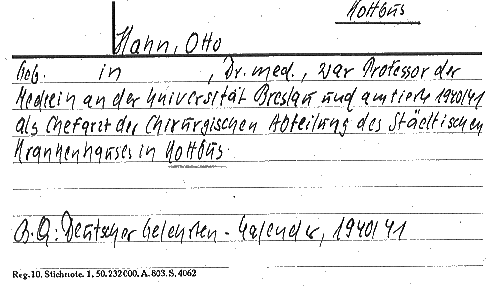 Kottbus
Hahn, Otto
Geb. in , Dr. med., war Professor der
Medizin an der Universität Breslau und amtierte 1940/41
als Chefarzt der Chirurgischen Abteilung des Städtischen
Krankenhauses in Kottbus.
B.Q.: Deutscher Gelehrten-Kalender, 1940/41
Reg. 10. Stichnote. 1, 50. 232000. A. 803. S. 4062